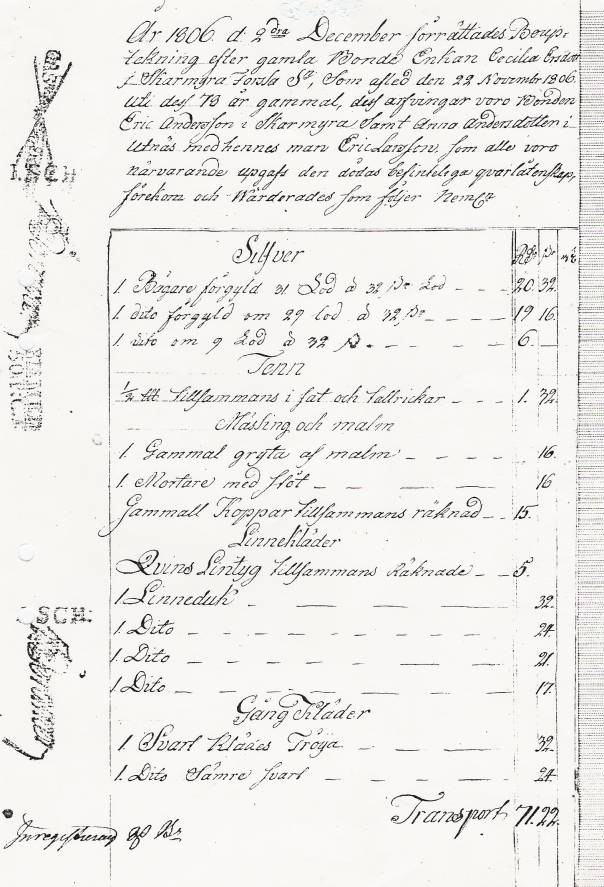 År 1806. d. 2dra December förrättades Boup=
tekning efter gamla Bonde Enkan Cecilia Ersdotter
i Skarmyra Forsla Sn, Som afled den 22 Novembr 1806.
uti dess 73 år gammal, dess arfvingar voro Bonden
Eric Andersson i Skarmyra Samt Anna Andersdotter i
Utnäs med hennes man Eric Larsson, som alle voro
närvarande upgafs den dödas befintelega qvarlåtenskap,
förekom och Wärderades som följer Neml
Silfver Rd ß
1. Bägare förgyld 31 Lod à 32 ß Lod – – – 20. 32.
1. dito förgyld om 29 lod à 32 ß – – – – 19 16.
1 dito om 9 Lod à 32 ß. – – – – 6.
Tenn
½ tillsammans i fat och tallrickar – – – 1. 32.
Mässing och malm
1. Gammal gryta af malm – – – – 16.
1. Mortare med stöt – – – – 16
Gammall Koppar tillsammans räknad – – 15.
Linnekläder
Qvins Lintyg tillsammans Räknade – – 5.
1. Linneduk – – – – – 32.
1. Dito – – – – – – 24.
1. Dito – – – – – – 21.
1. Dito – – – – – – 17.
Gång Kläder
1. Svart Klädes Tröya – – – – 32.
1. Dito Sämre svart – – – – 24.
Transport 71. 22.
SCH.